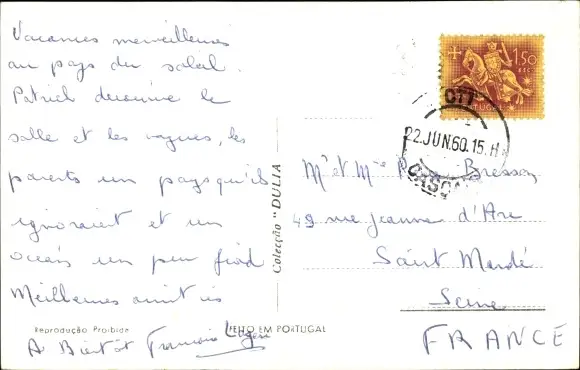 Vacances merveilleuses
au pays du soleil.
Patrick découvre le
sable et les vagues, les
parents un pays qu'ils
ignoraient et un
océan un peu froid
Meilleures amitiés
A Bientôt François
Reprodução Proibida
FEITO EM PORTUGAL
Colecção "DULIA
1$50
22.JUN.60.15.H
CASCA
Mr et Mme Bresson
49 rue Jeanne d'Arc
Saint Mandé
Seine
FRANCE